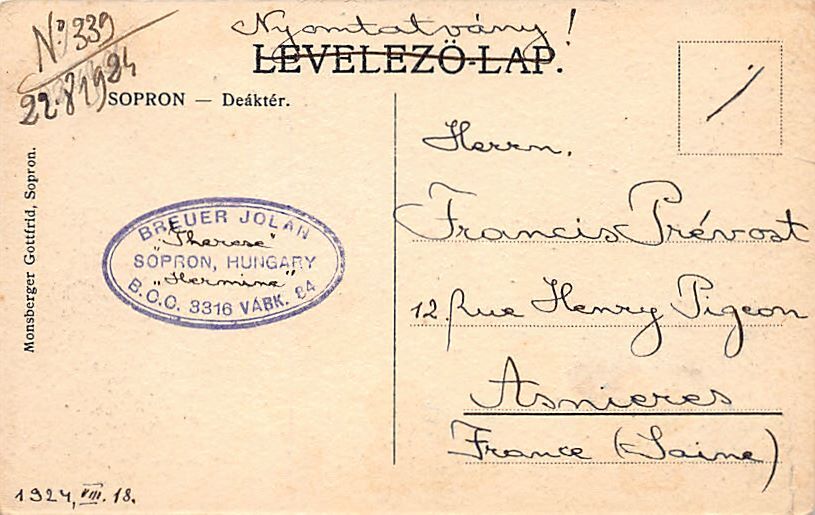 Nyomtatvány!
LEVELEZŐ-LAP.
No. 339
22.8 1924
SOPRON — Deáktér.
Monsberger Gottfrid, Sopron.
BREUER JOLAN
"Therese"
SOPRON, HUNGARY
"Hermina"
B.C.C. 3316 VÁRK. 24
Herrn.
Francis Prévost
12. Rue Henry Pigeon
Asnieres
France (Saine)
1924, VIII. 18.